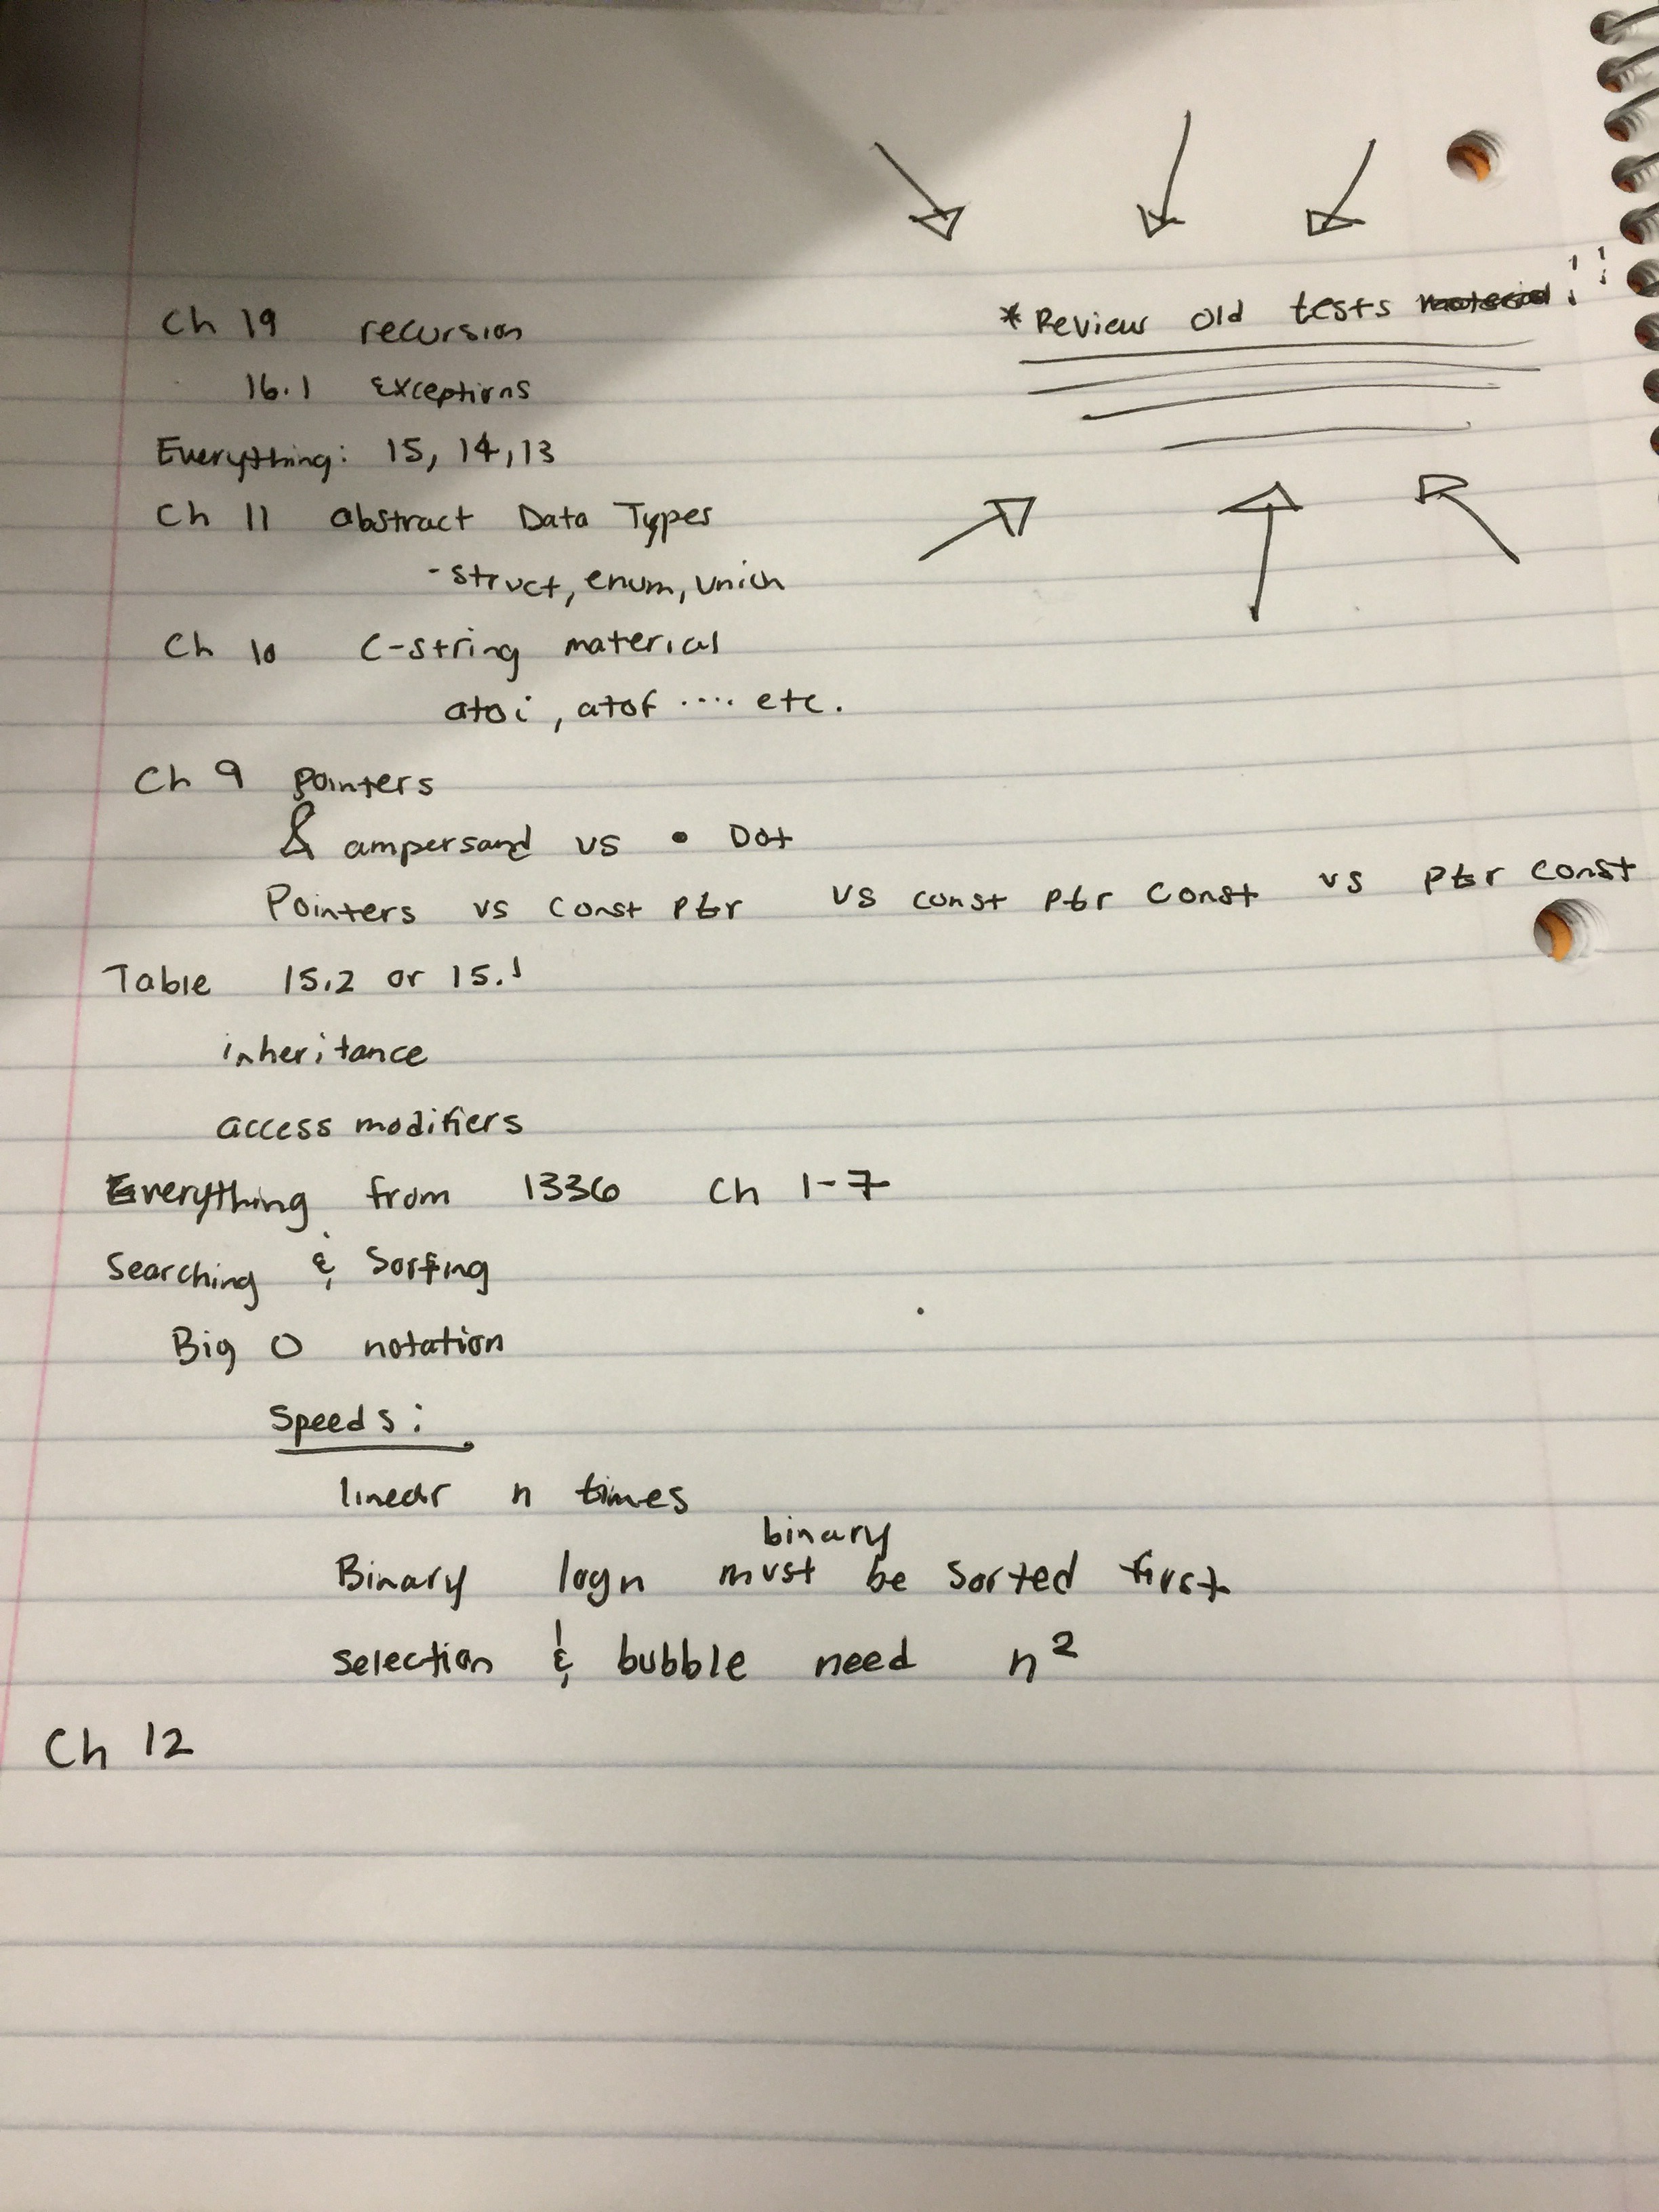 Ch 19 recursion
*Review old tests !!!
16.1 Exceptions
Everything: 15, 14, 13
Ch 11 Abstract Data Types
- struct, enum, union
Ch 10 C-string material
atoi, atof .... etc.
Ch 9 Pointers
& ampersand vs • Dot
Pointers vs const ptr vs const ptr const vs ptr const
Table 15.2 or 15.1
inheritance
access modifiers
Everything from 1336 Ch 1-7
Searching & Sorting
Big O notation
Speeds:
linear n times
binary
Binary logn must be sorted first
selection & bubble need n²
Ch 12